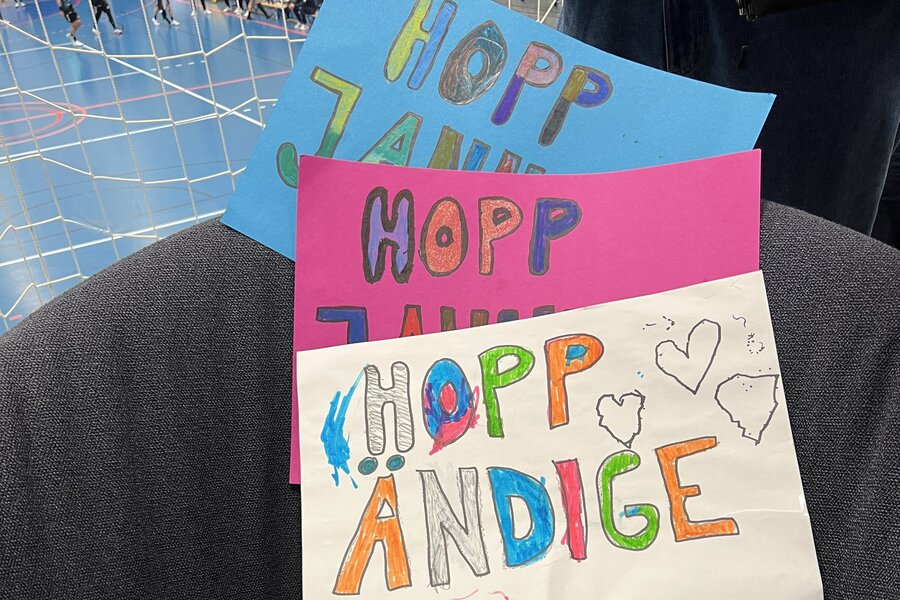 HOPP
HOPP
HOPP
ÄNDIGE